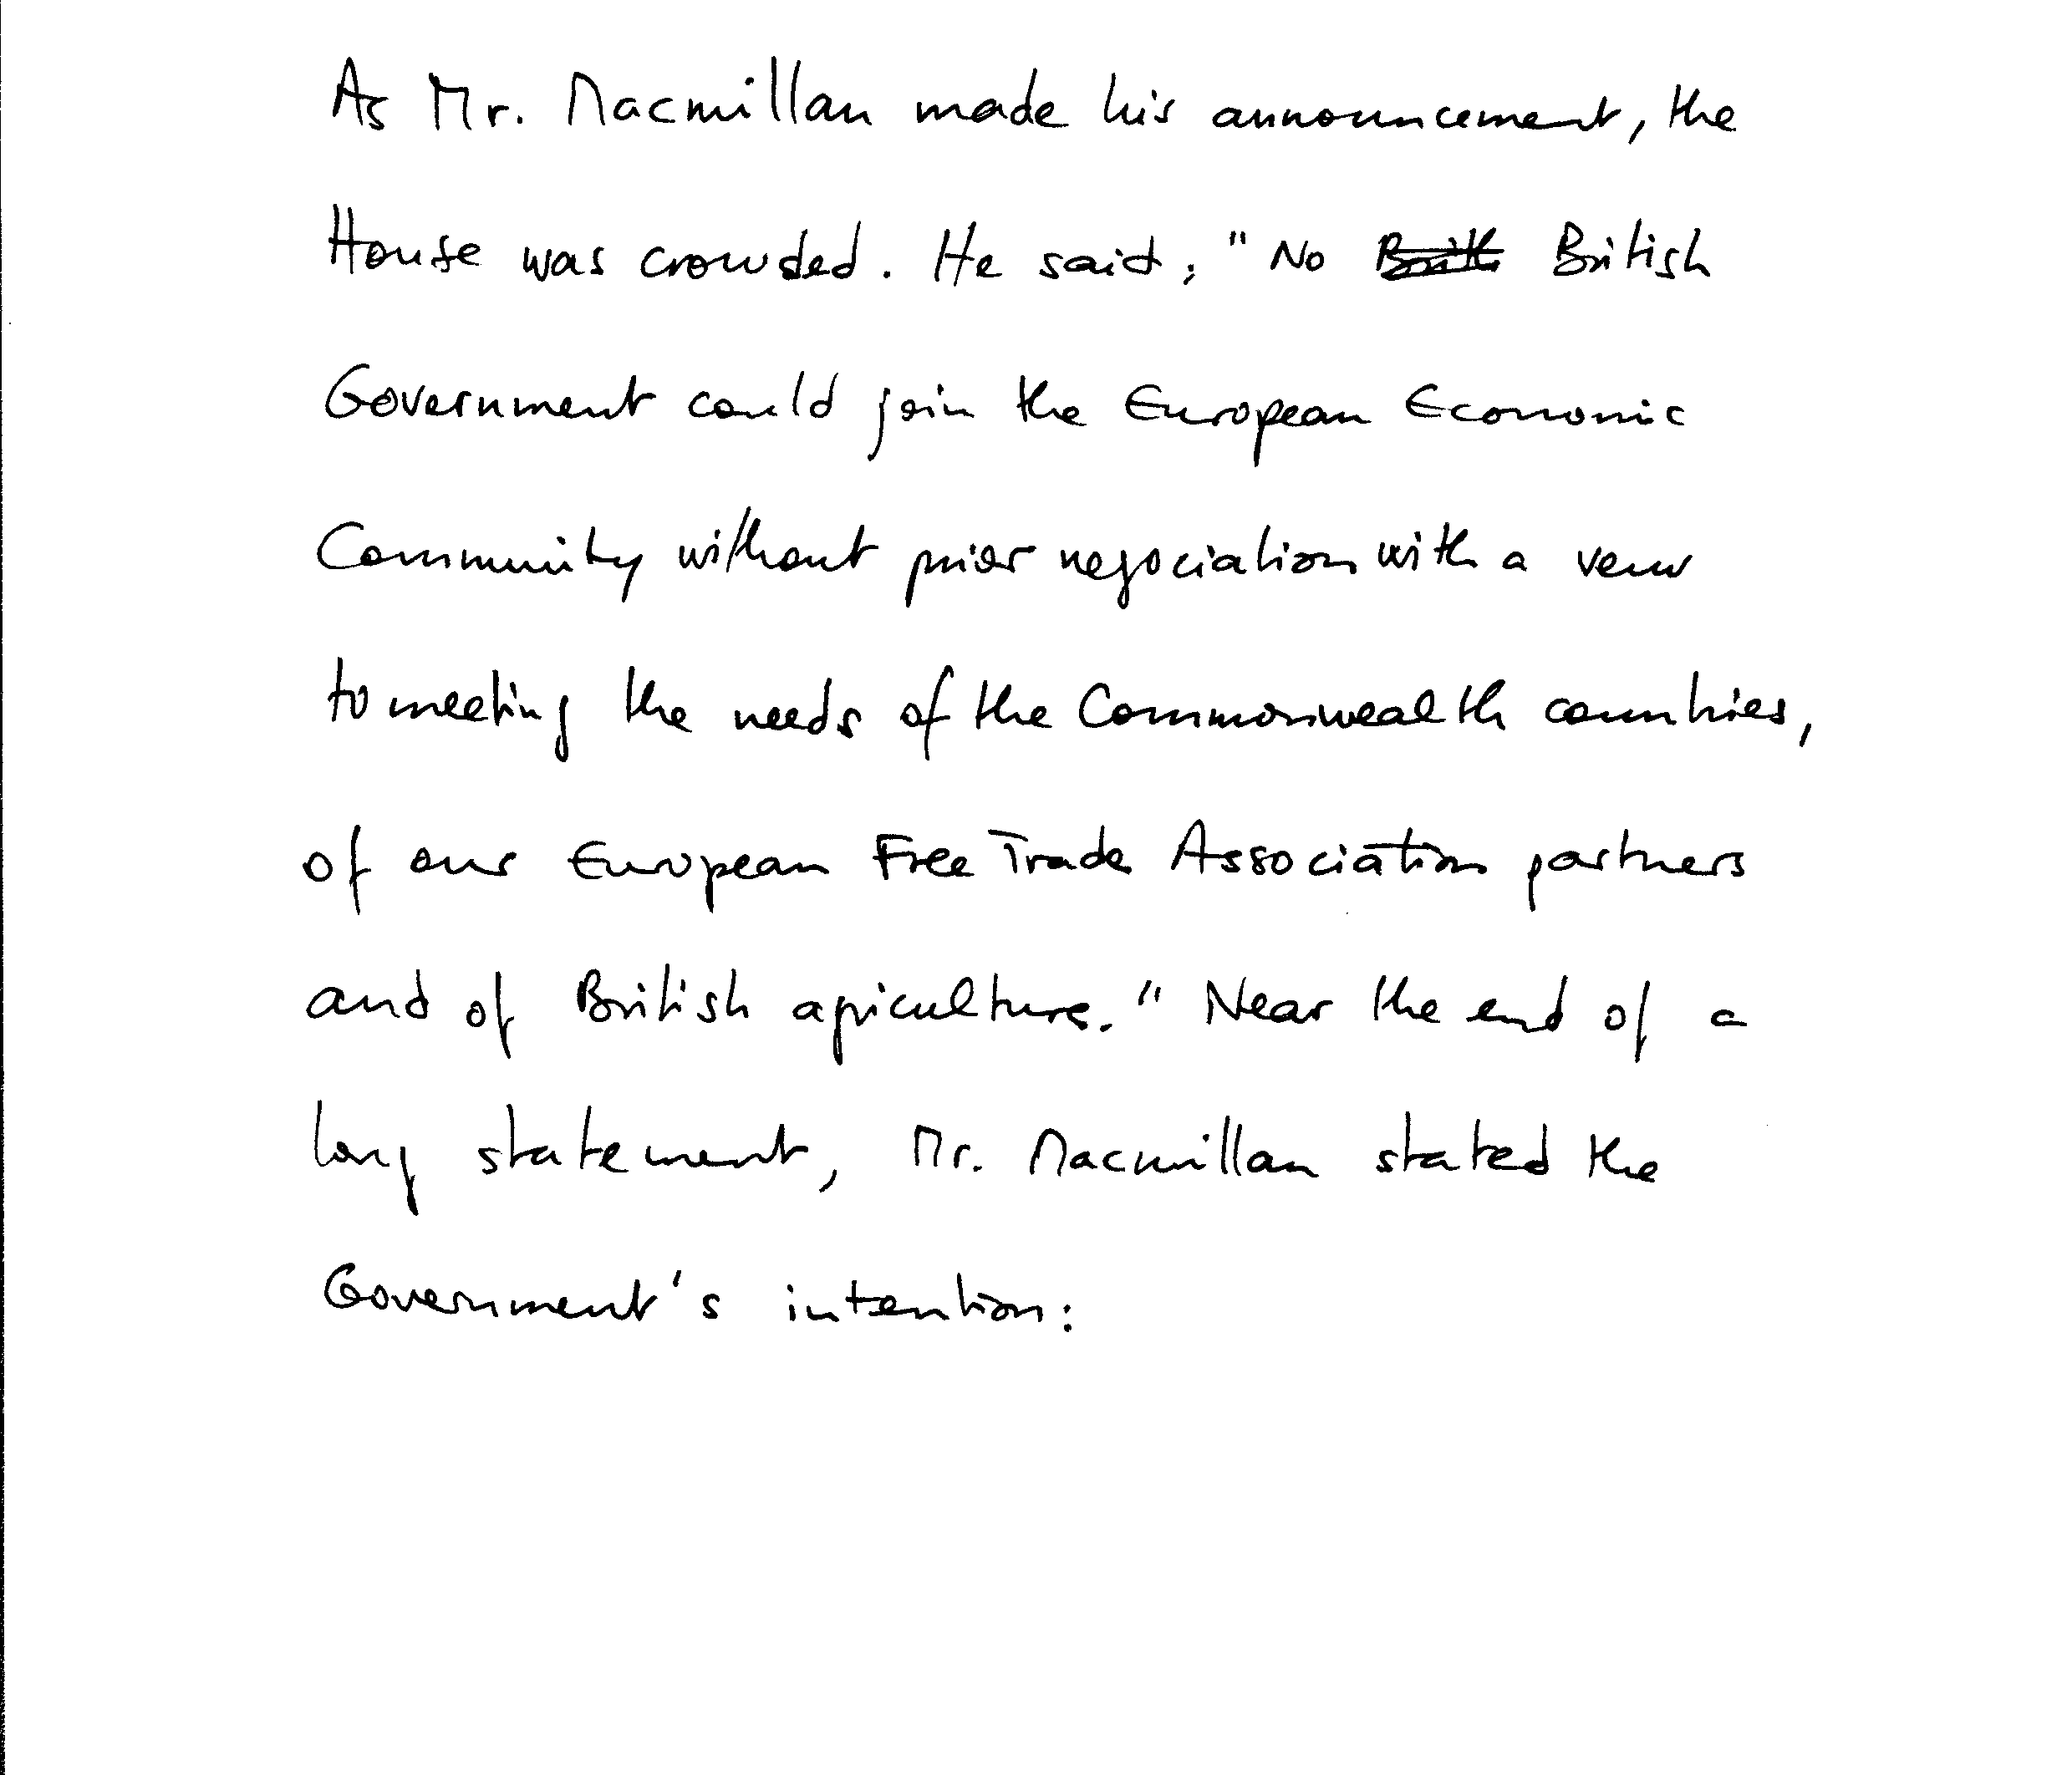 As Mr. Macmillan made his announcement, the
House was crowded. He said: "No British
Government could join the European Economic
Community without prior negociation with a view
to meeting the needs of the Commonwealth countries,
of our European Free Trade Association partners
and of British agriculture." Near the end of a
long statement, Mr. Macmillan stated the
Government's intention: